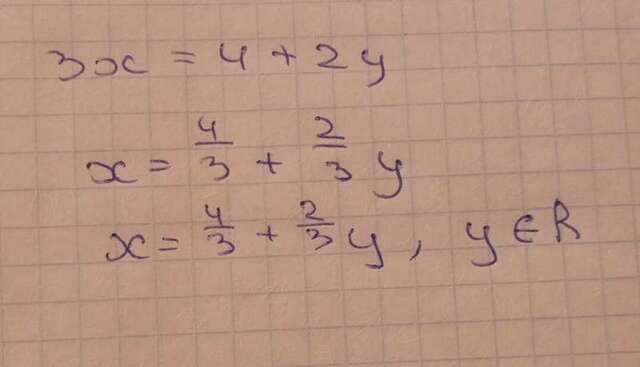 3x = 4 + 2y
x = 4/3 + 2/3 y
x = 4/3 + 2/3 y, y ∈ R